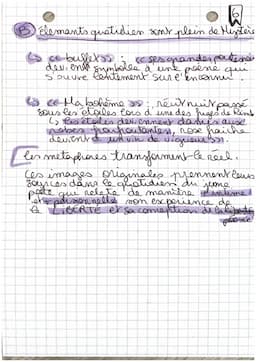 B) éléments quotidien sont plein de Mystère
↳ « buffet » : « ses grandes portes »
devient symbole d'une poésie qui
s'ouvre lentement sur l'inconnu.
↳ « Ma bohème » : récit nuit passé
sous les étoiles lors d'une des fugues de Rimb
les étoiles deviennent dames aux
robes froufroutantes, rose fraîche
devient « un vin de vigueur ».
les métaphores transforment le réel.
Ces images originales prennent leurs
sources dans le quotidien du jeune
poète qui relate de manière intime
et personnelle son expérience de
la LIBERTÉ et sa conception de la liberté